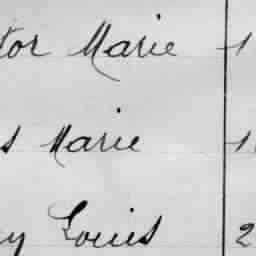 tor Marie 1
s Marie 1
ey Louis 2